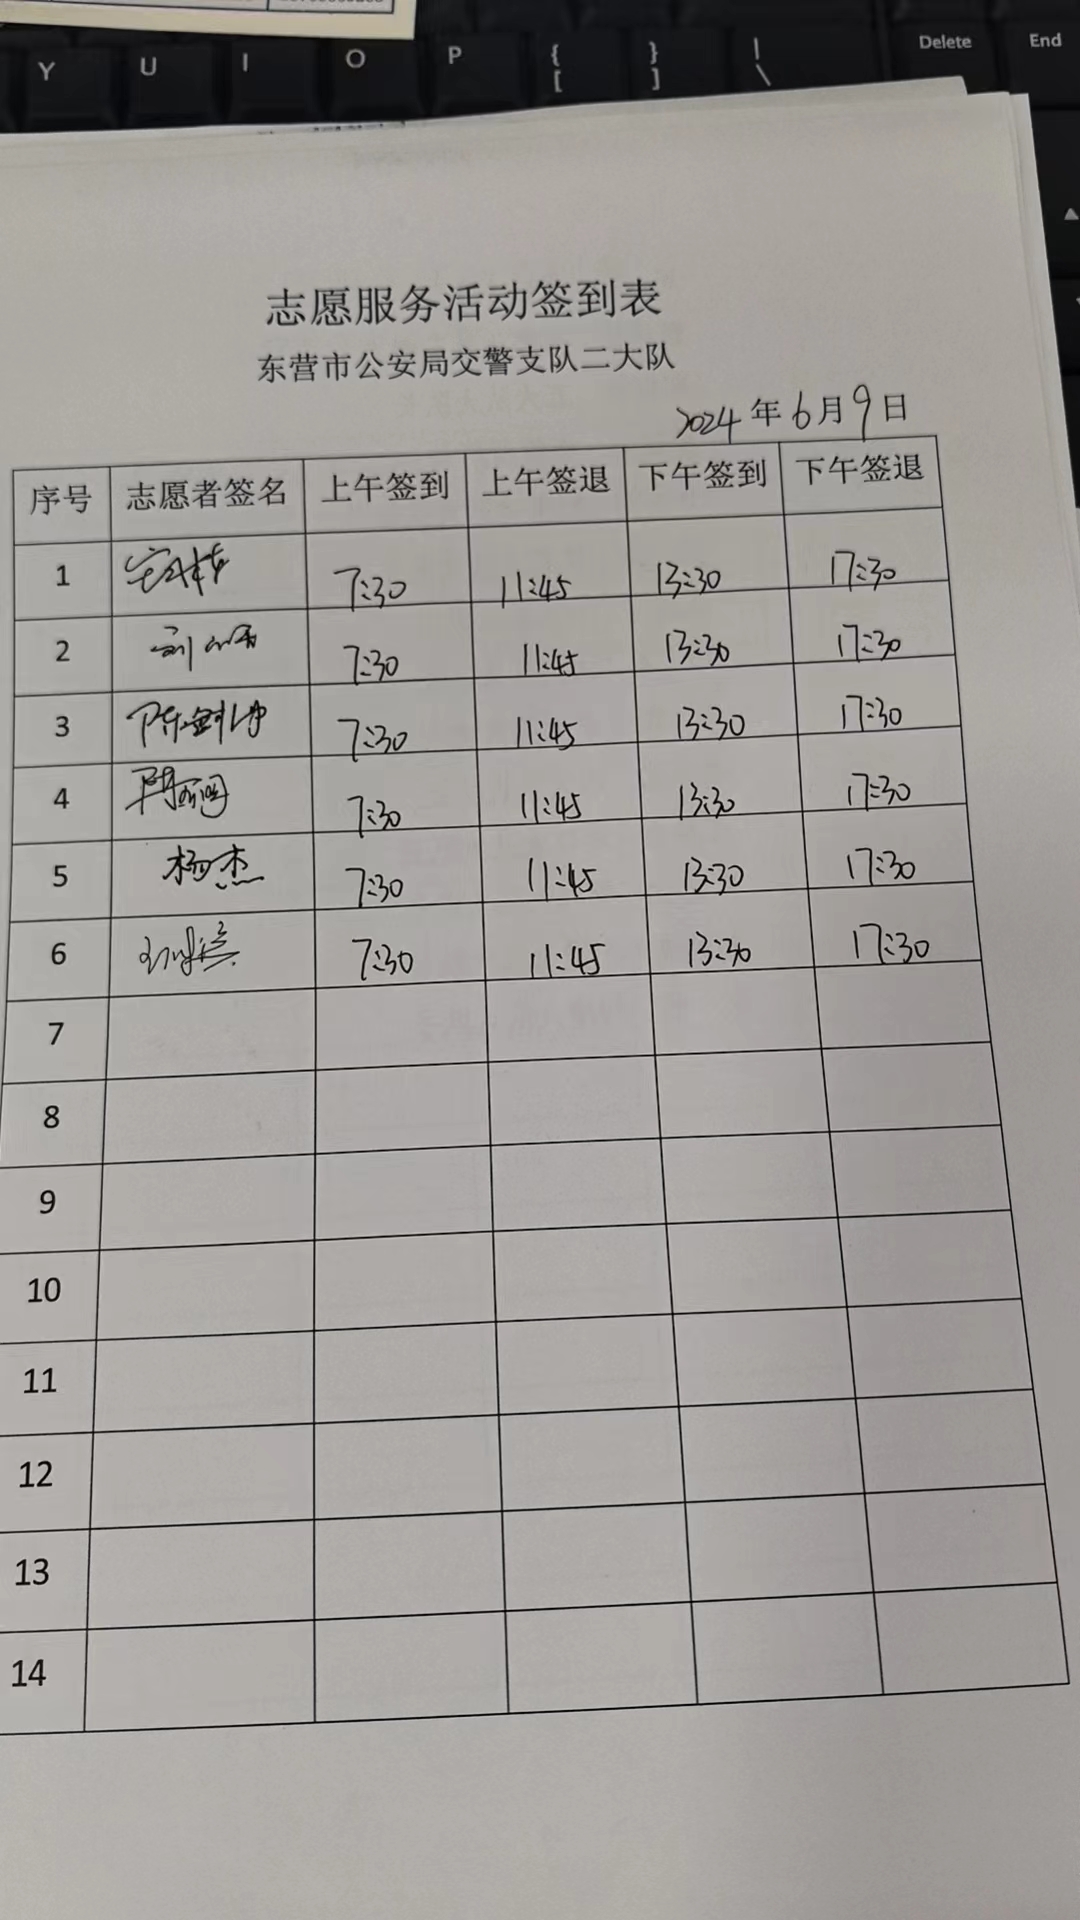 Y U I O P { [ } ] | \ Delete End
志愿服务活动签到表
东营市公安局交警支队二大队
2024年6月9日
序号 志愿者签名 上午签到 上午签退 下午签到 下午签退
1 7:30 11:45 13:30 17:30
2 7:30 11:45 13:30 17:30
3 7:30 11:45 13:30 17:30
4 7:30 11:45 13:30 17:30
5 杨杰 7:30 11:45 13:30 17:30
6 7:30 11:45 13:30 17:30
7
8
9
10
11
12
13
14